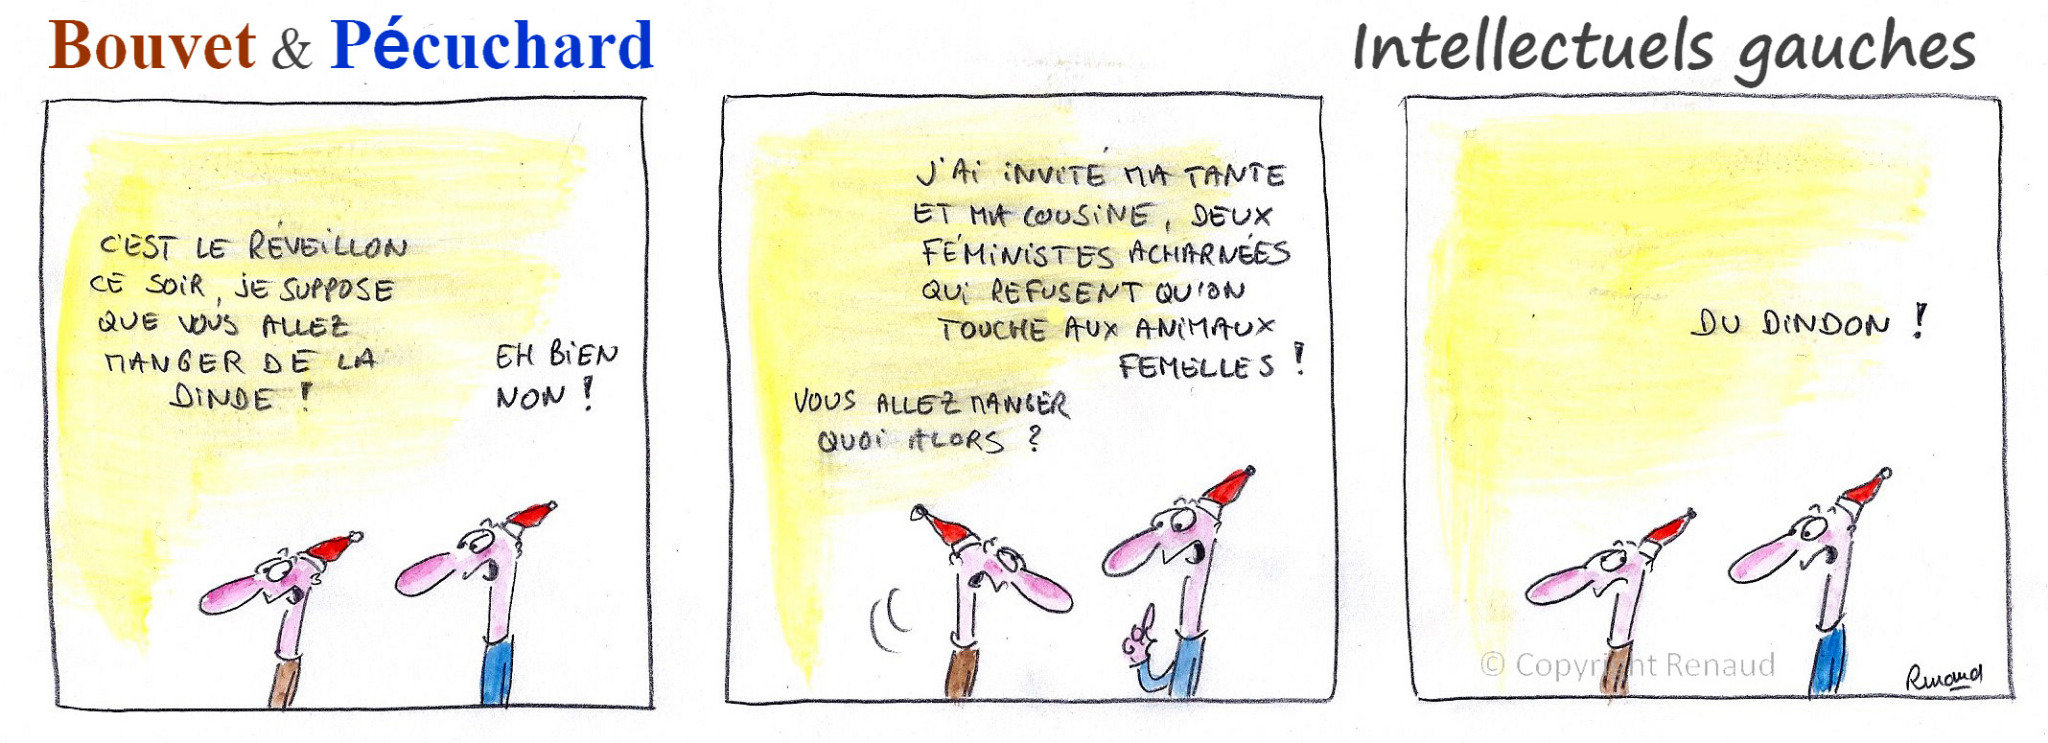 Bouvet & Pécuchard
Intellectuels gauches
C'EST LE RÉVEILLON
CE SOIR, JE SUPPOSE
QUE VOUS ALLEZ
MANGER DE LA
DINDE !
EH BIEN
NON !
J'AI INVITÉ MA TANTE
ET MA COUSINE, DEUX
FÉMINISTES ACHARNÉES
QUI REFUSENT QU'ON
TOUCHE AUX ANIMAUX
FEMELLES !
VOUS ALLEZ MANGER
QUOI ALORS ?
DU DINDON !
© Copyright Renaud
Renaud